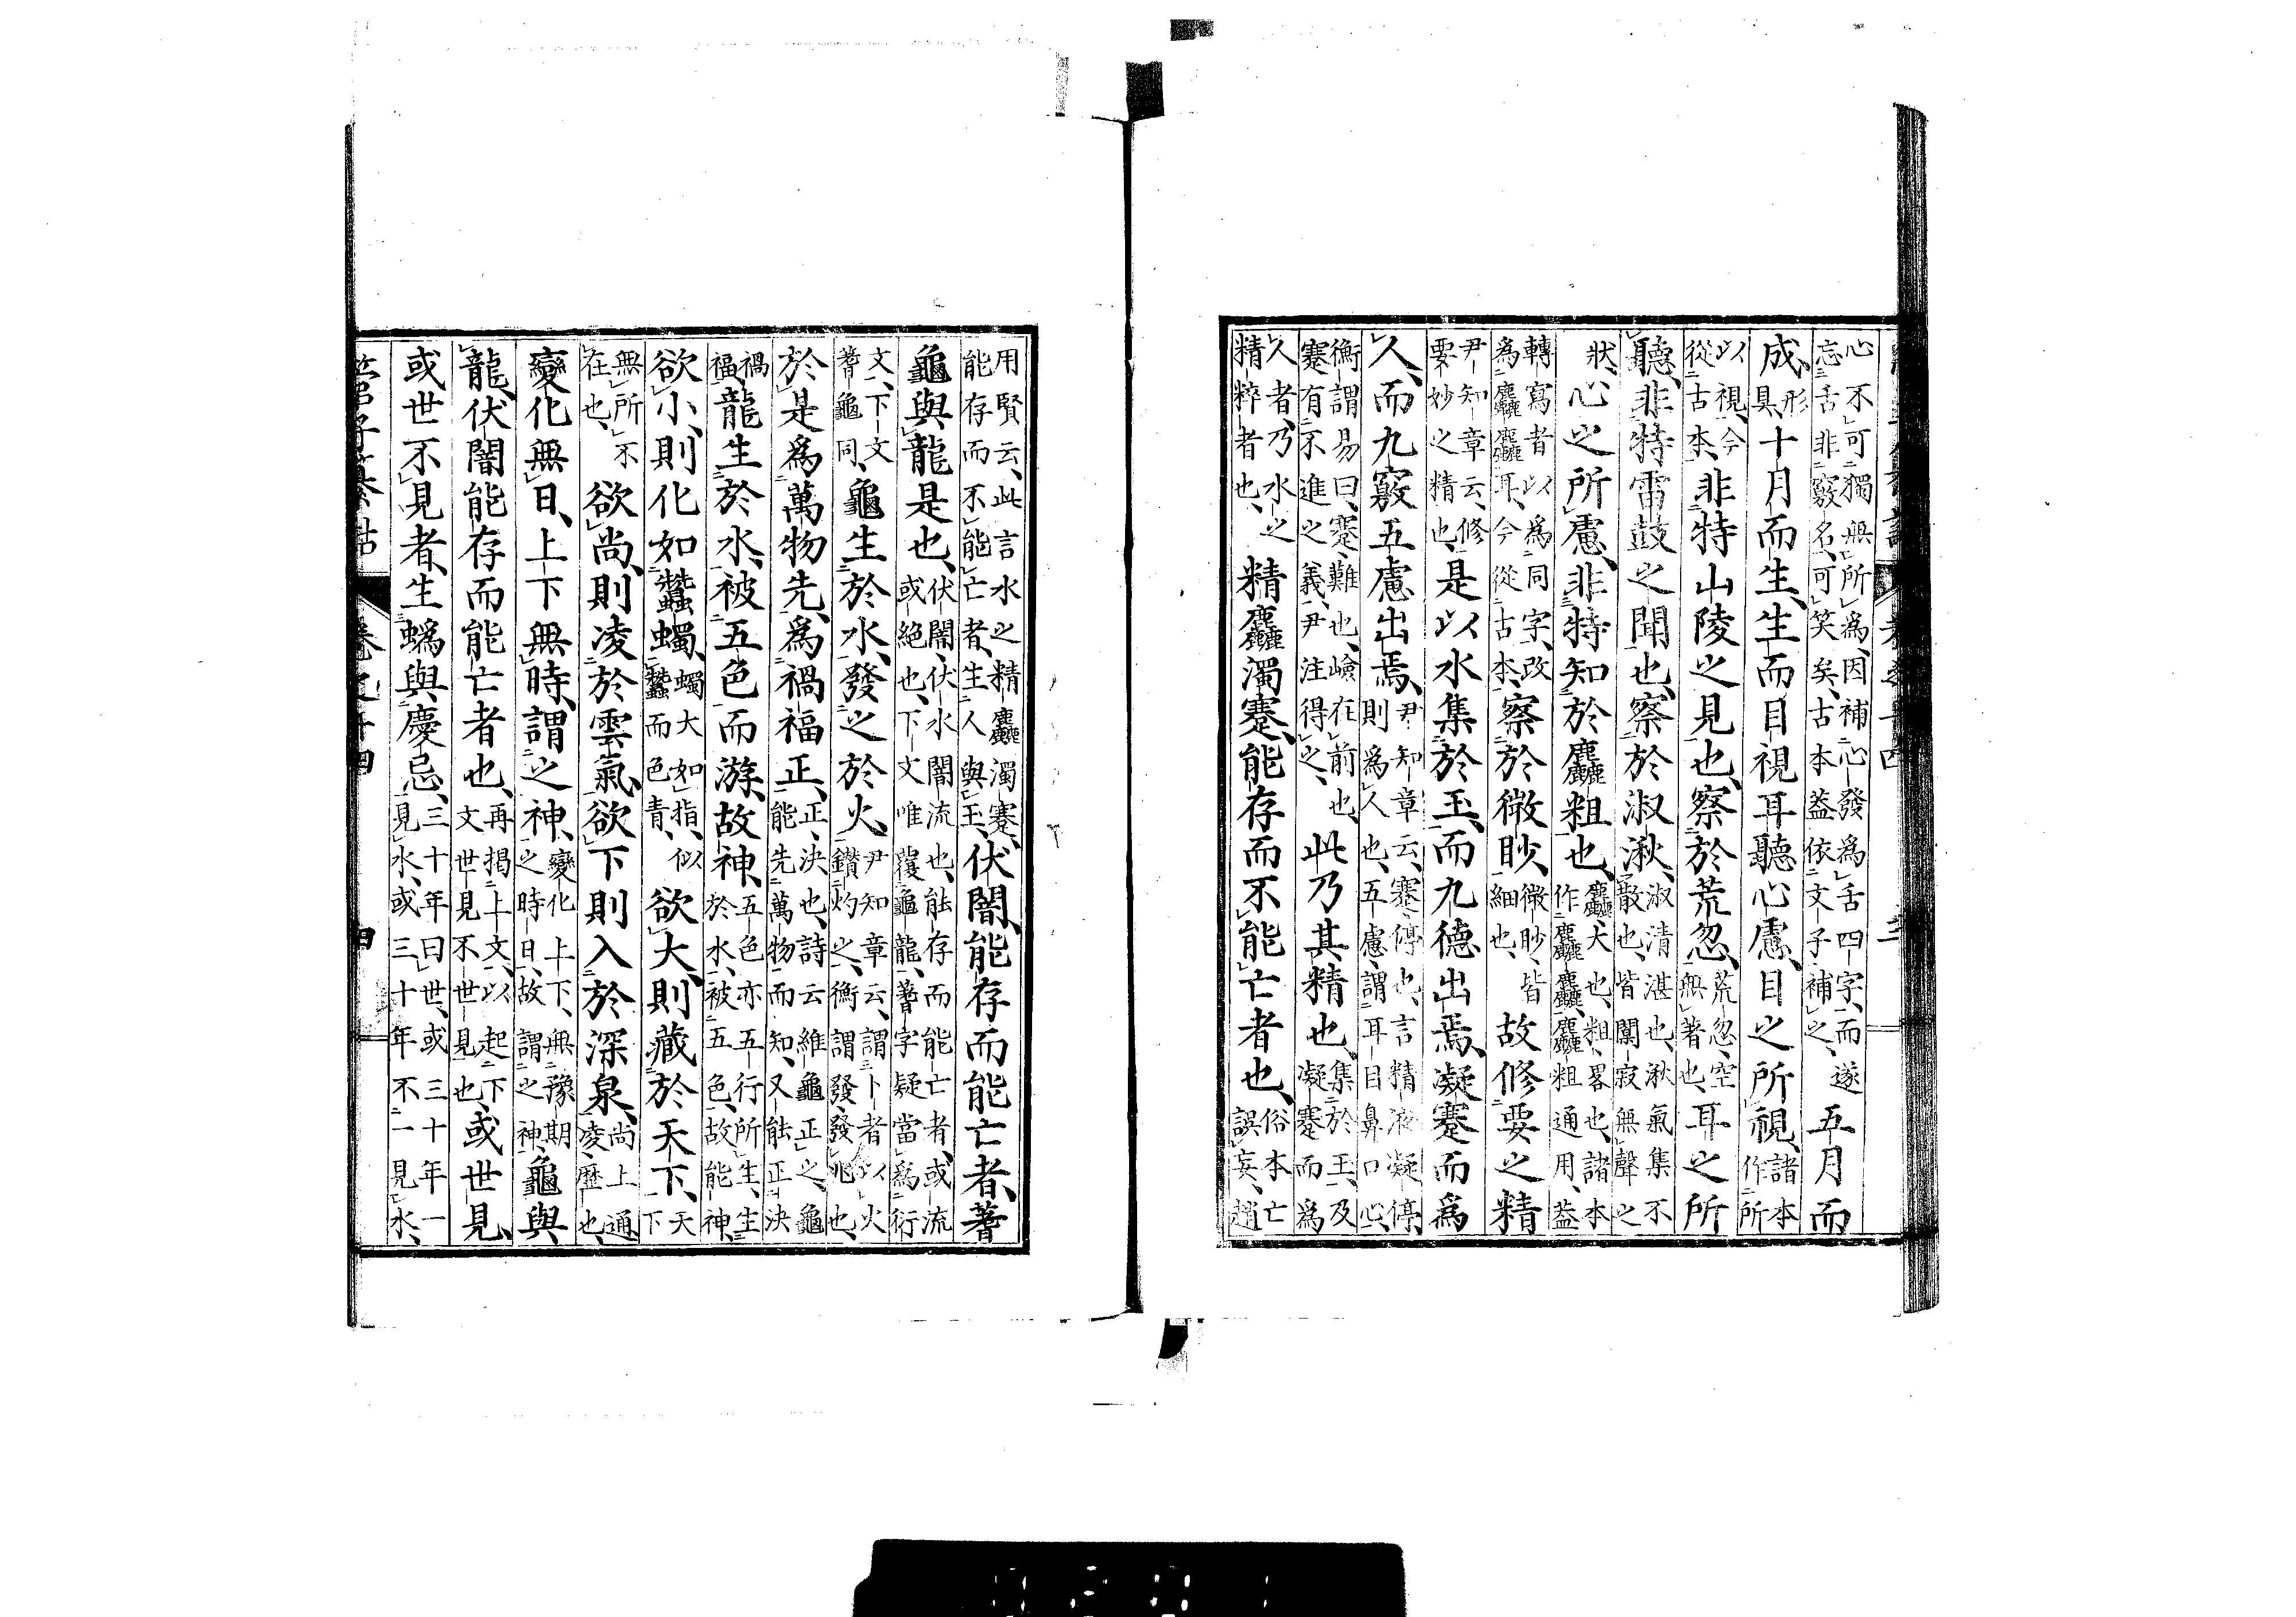 管子纂詁 卷之十四 三
心不可獨無所爲、因補心發爲舌四字、而遂忘舌非竅名、可笑矣、古本葢依文子補之、五月而
成、形具、十月而生、生而目視耳聽心慮、目之所視、諸本作所
以視、今從古本、非特山陵之見也、察於荒忽、荒忽、空無著也、耳之所
聽、非特雷鼓之聞也、察於淑湫、淑清湛也、湫氣集不散也、皆闃寂無聲之
狀、心之所慮、非特知於麤粗也、麤、大也、粗、畧也、諸本作麤麤、麤粗通用、葢
轉寫者以爲同字、改爲麤麤耳、今從古本、察於微眇、微眇、皆細也、故修要之精
尹知章云、修要妙之精也、是以水集於玉、而九德出焉、凝蹇而爲
人、而九竅五慮出焉、尹知章云、蹇、停也、言精液凝停則爲人也、五慮、謂耳目鼻口心、
衡謂易曰、蹇、難也、嶮在前也、蹇有不進之義、尹注得之、此乃其精也、集於玉、及凝蹇而爲
人者、乃水之精粹者也、精麤濁蹇、能存而不能亡者也、俗本亡誤妄、趙
用賢云、此言水之精麤濁蹇、能存而不能亡者、生人與玉、伏闇、能存而能亡者、蓍
龜與龍是也、伏闇、伏水闇流也、能存而能亡者、或流或絕也、下文唯覆龜龍、蓍字疑當爲衍
文、下文蓍龜同、龜生於水、發之於火、尹知章云、謂卜者以火鑽灼之、衡謂發、發兆也、
於是爲萬物先、爲禍福正、正、決也、詩云維龜正之、龜能先萬物而知、又能正決
禍福、龍生於水、被五色而游、故神、五色亦五行所生、生於水、被五色、故能神、
欲小、則化如蠶蠋、蠋大如指、似蠶而色青、欲大、則藏於天下、天下
無所不在也、欲尚、則凌於雲氣、欲下則入於深泉、尚上通凌、歷也、
變化無日、上下無時、謂之神、變化上下、無豫期之時日、故謂之神、龜與
龍、伏闇能存而能亡者也、再揭上文、以起下文世見不世見也、或世見、
或世不見者、生蟡與慶忌、三十年曰世、或三十年一見水、或三十年不一見水、
管子纂詁 卷之十四 四